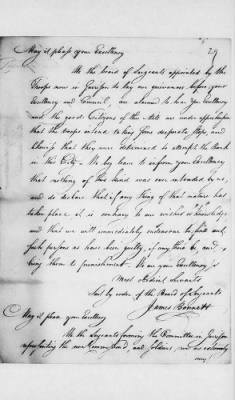 May it please your Excellency
29
We the board of Sergeants appointed by the
Troops now in Garrison to lay our grievances before your
Excellency and Council, are alarmed to hear your Excellency
and the good Citizens of this State are under apprehensions
that the troops intend to take some desperate steps, and
that they were determined to attempt the Bank
in the City. We beg leave to inform your Excellency
that nothing of this kind was ever intended by us,
and do declare that if any thing of that nature has
taken place it is contrary to our wishes or knowledge
and that we will immediately endeavour to find out
such persons as have been guilty, if any there be, and
bring them to punishment. We are your Excellency's
Most Obedient Servants
Sign'd by order of the Board of Sergeants
James Bennett
May it please your Excellency
We the Sergeants forming the Committee in Garrison
representing the non Comm and Soldiers, now